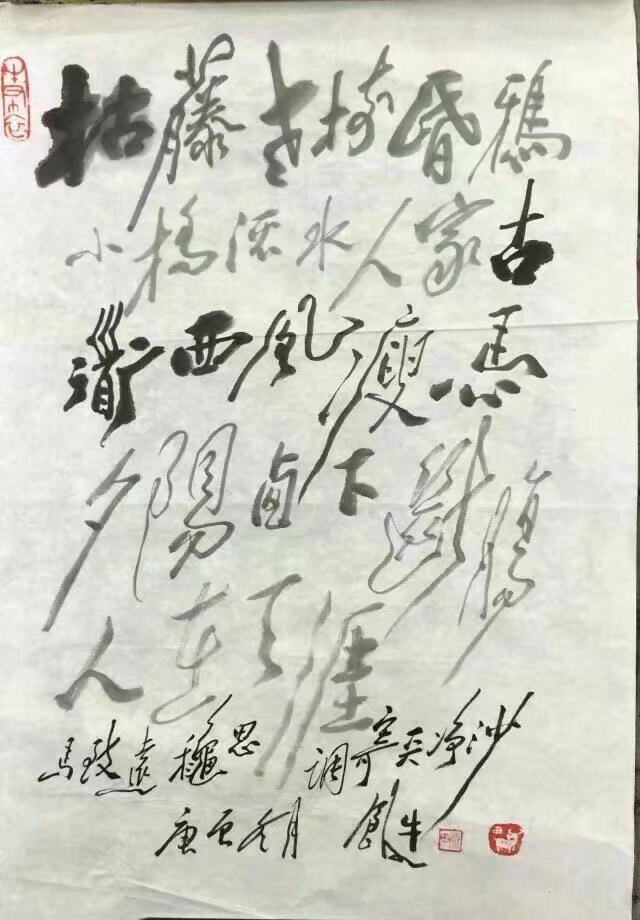 枯藤老树昏鴉
小橋流水人家古
道西風瘦馬
夕陽西下斷腸
人在天涯
馬致遠 穐思 調寄天净沙
庚 冬月 牛